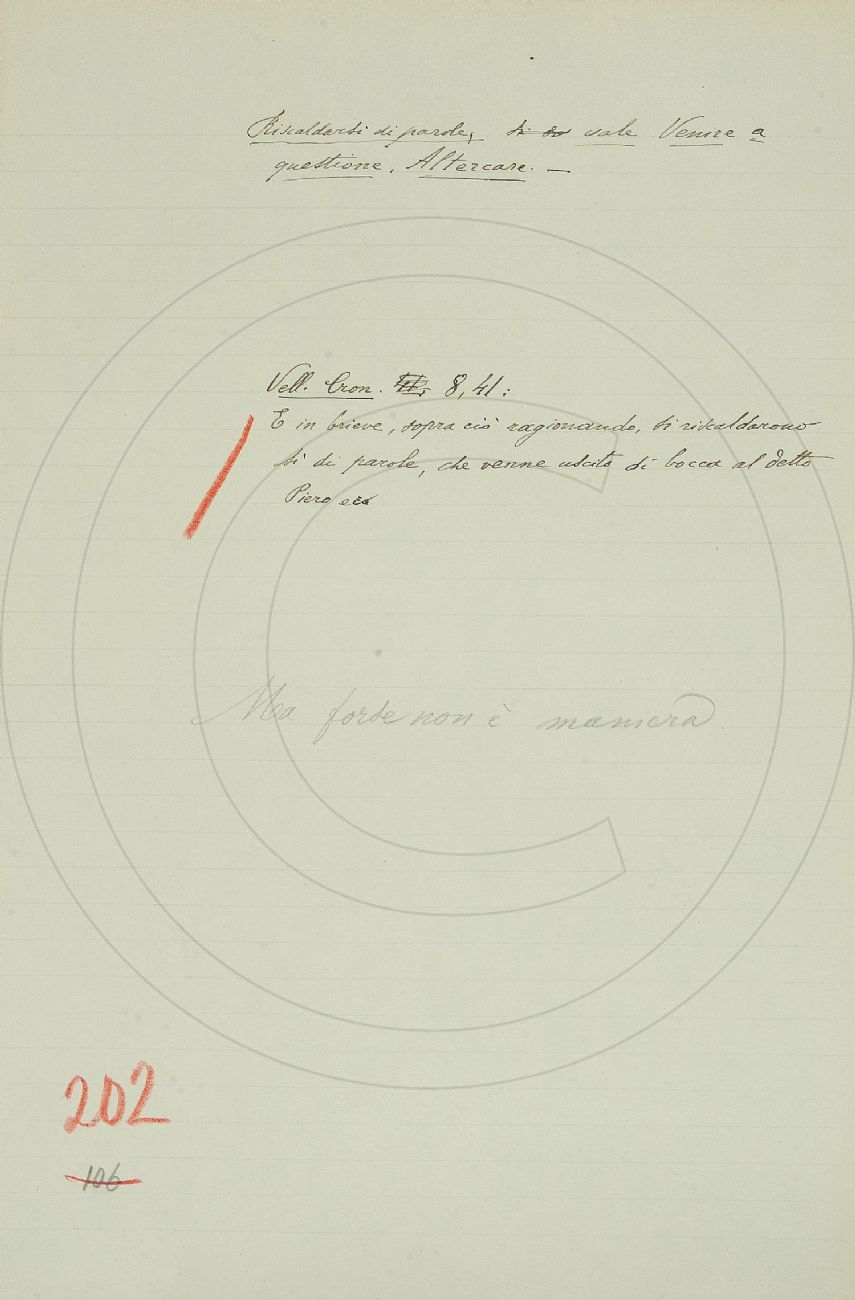 Riscaldarsi di parole, si so vale Venire a
questione, Altercare. —
Vell. Cron. 8, 41:
E in brieve, sopra ciò ragionando, si riscaldarono
si di parole, che venne uscito di bocca al detto
Piero ec
Ma forse non è maniera.
202
106